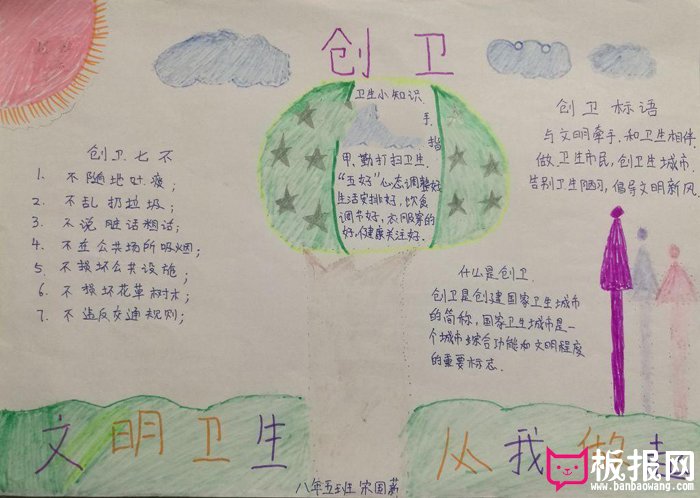 创卫
创卫七不
1. 不随地吐痰;
2. 不乱扔垃圾;
3. 不说脏话粗话;
4. 不在公共场所吸烟;
5. 不损坏公共设施;
6. 不损坏花草树木;
7. 不违反交通规则;
卫生小知识
手
指
甲、勤打扫卫生.
"五好"心态调整好
生活安排好,饮食
调节好,衣服穿的
好,健康关注好.
创卫标语
与文明牵手,和卫生相伴
做卫生市民,创卫生城市.
告别卫生陋习,倡导文明新风.
什么是创卫.
创卫是创建国家卫生城市
的简称,国家卫生城市是一
个城市综合功能和文明程度
的重要标志.
文明卫生
从我做起
八年五班 宋国
板报网
www.banbaowang.com